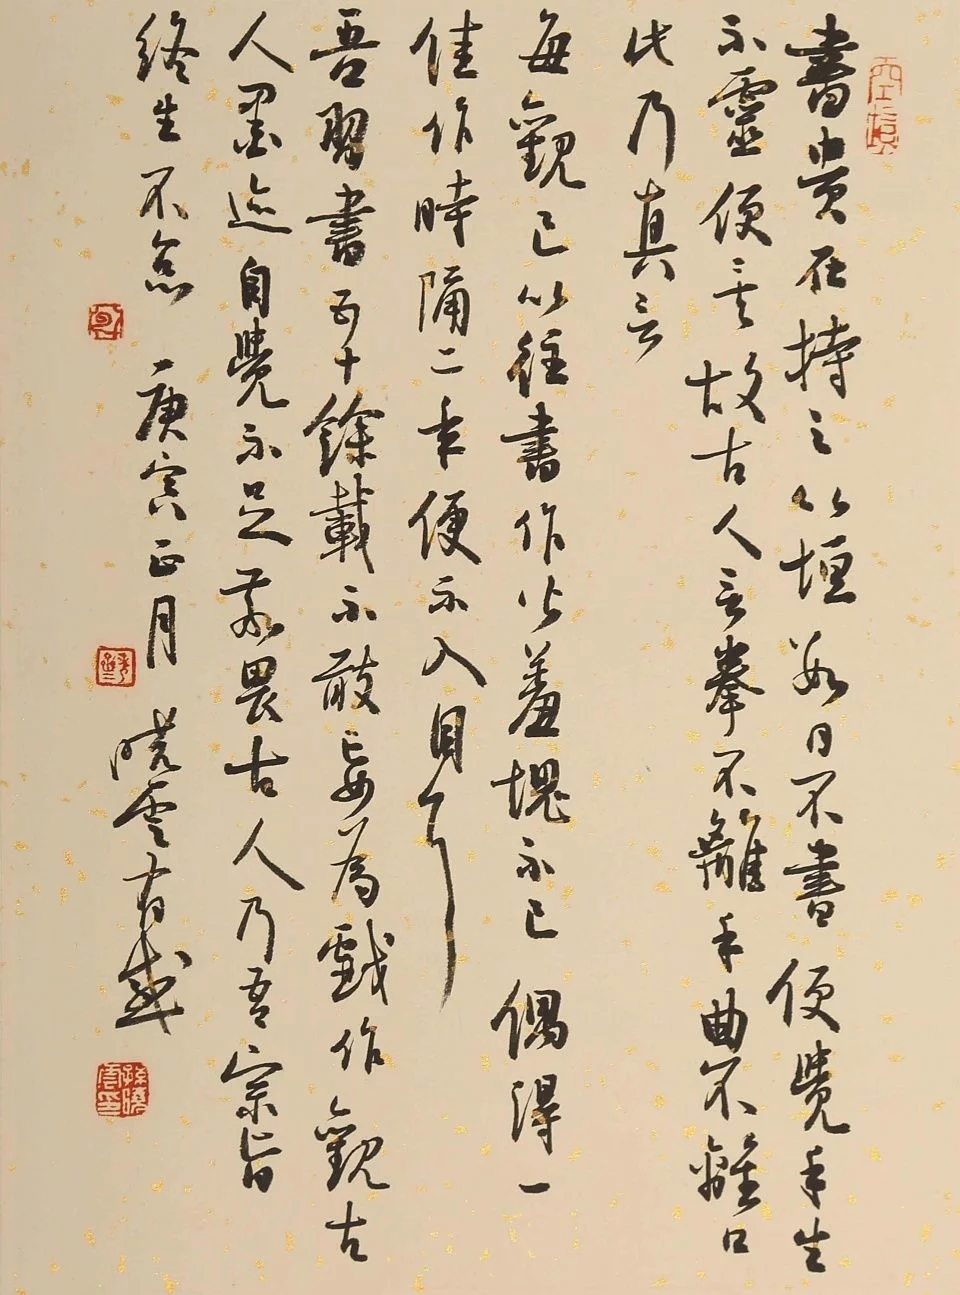 書貴在持之以恒數日不書便覺手生
不靈便矣故古人云拳不離手曲不離口
此乃真言
每觀已以往書作必羞愧不已偶得一
佳作時隔二年便不入目了
吾習書五十餘載不敢妄為戲作觀古
人墨迹自覺不足敬畏古人乃吾宗旨
終生不怠庚寅正月曉雲有感
孫曉雲印